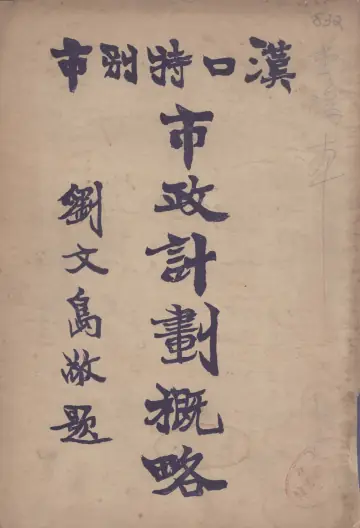 漢口特別市
市政計劃概略
劉文島敬題
832